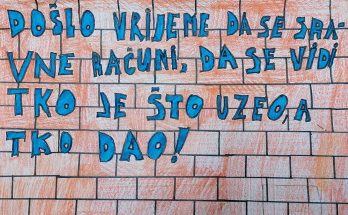 DOŠLO VRIJEME DA SE SRA-
VNE RAČUNI, DA SE VIDI
TKO JE ŠTO UZEO, A
TKO DAO!